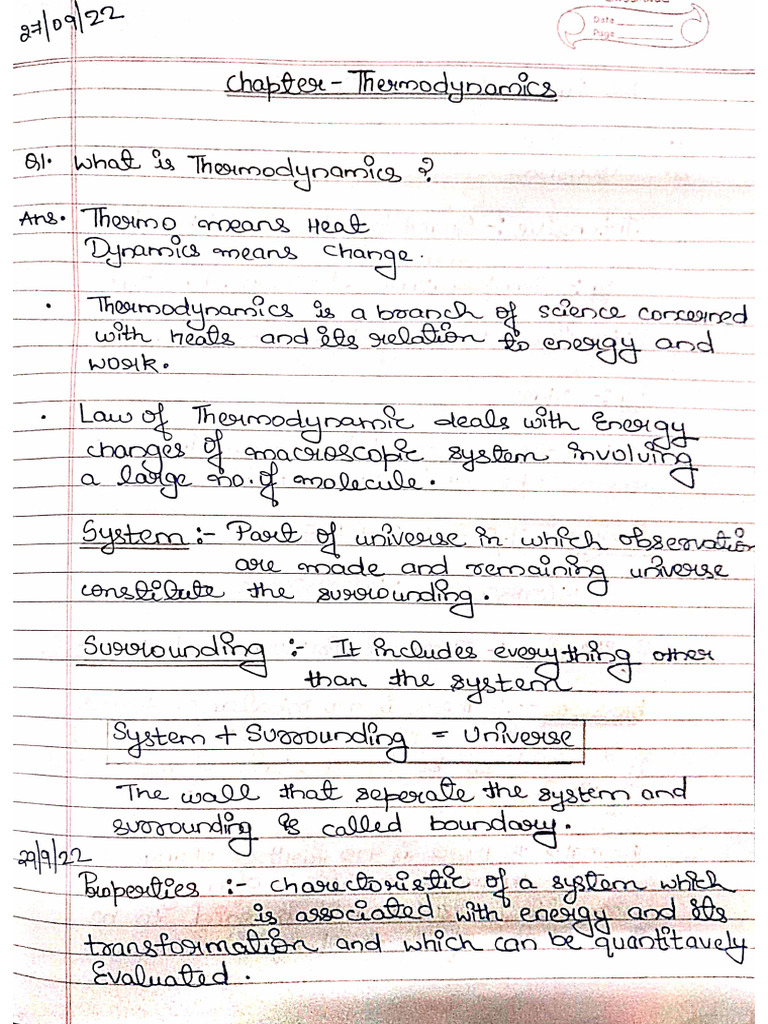 27/09/22
Date
Page
Chapter - Thermodynamics
Q1. What is Thermodynamics ?
Ans. Thermo means Heat
Dynamics means change.
• Thermodynamics is a branch of science concerned
with heats and its relation to energy and
work.
• Law of Thermodynamic deals with Energy
changes of macroscopic system involving
a large no. of molecule.
System :- Part of universe in which observation
are made and remaining universe
constitute the surrounding.
Surrounding :- It includes everything other
than the system
System + Surrounding = Universe
The wall that seperate the system and
surrounding is called boundary.
29/9/22
Properties :- charectoristic of a system which
is associated with energy and its
transformation and which can be quantitavely
Evaluated.